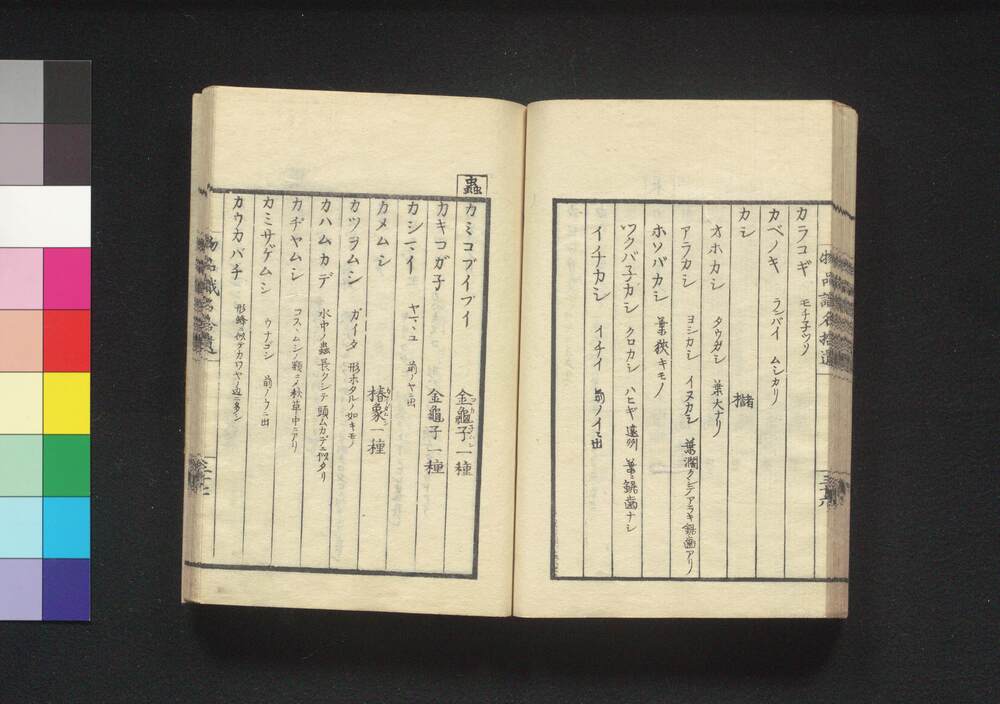 カラコギ モチ子ツリ
カベノキ ランバイ ムシカリ
カシ 櫧
オホカシ タウガシ 葉大ナリ
アラカシ ヨシカシ イヌカシ 葉濶クシテアラキ鋸歯アリ
ホソバカシ 葉狭キモノ
ツクバ子カシ クロカシ ハヒギ 遠州 葉ニ鋸歯ナシ
イチカシ イチイ 前ノイニ出
蟲
カミコブイブイ 金龜子一種
カキコガ子 金龜子一種
カシマイ ヤママユ 前ノヤニ出
カメムシ 椿象一種
カツヲムシ ガイタ 形ホタルノ如キモノ
カハムカデ 水中ノ蟲長クシテ頭ムカデニ似タリ
カヂヤムシ 秋草中ニアリ
カミサゲムシ ウナゴシ 前ノウニ出
カウカバチ 形蜂ニ似テカワヤノ辺ニ多シ